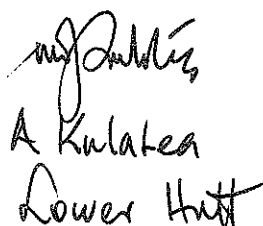 A Kulatea
Lower Hutt